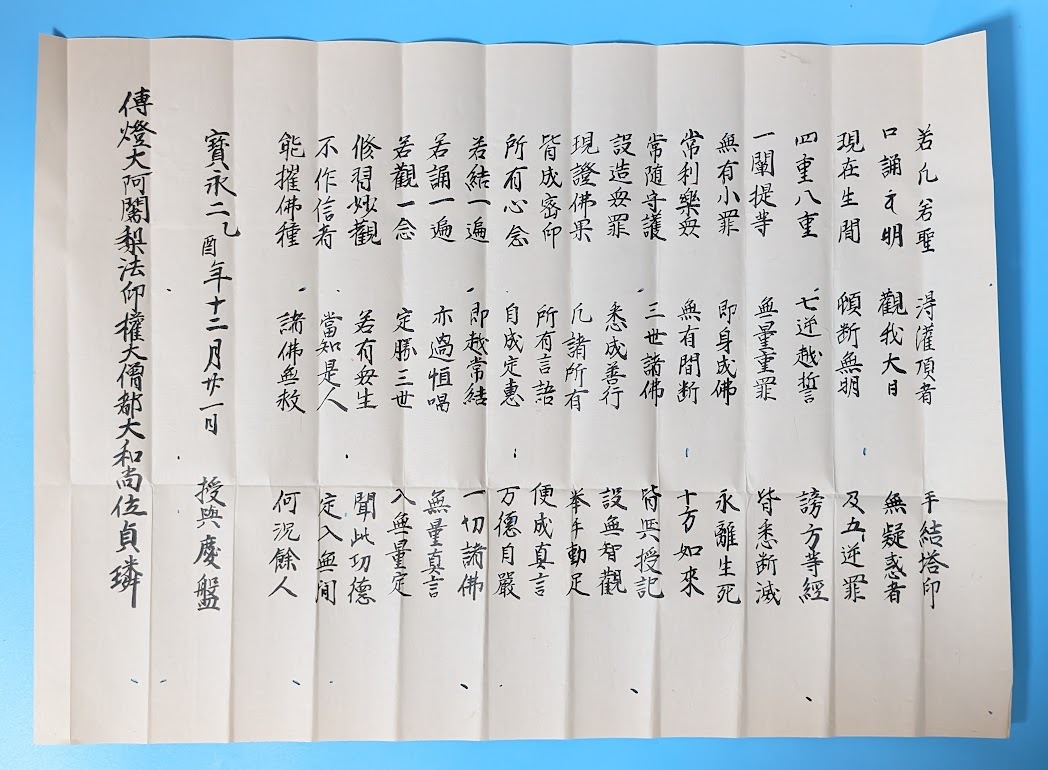 若凡若聖 得灌頂者 手結塔印
口誦𛀁明 觀我大日 無疑惑者
現在生間 頓断無明 及五逆罪
四重八重 七逆越誓 謗方等經
一闡提等 無量重罪 皆悉断滅
無有小罪 即身成佛 永離生死
常利樂 無有間断 十方如來
常随守護 三世諸佛 皆與授記
設造罪 悉成善行 設無智觀
現證佛果 凡諸所有 挙手動足
皆成密印 所有言語 便成真言
所有心念 自成定惠 万德自嚴
若結一遍 即越常結 一切諸佛
若誦一遍 亦過恒唱 無量真言
若觀一念 定勝三世 入無量定
修習妙觀 若有生 聞此功德
不作信者 當知是人 定入無间
能摧佛種 諸佛無救 何況餘人
寳永二乙酉年十二月廿一日 授與慶盤
傳燈大阿闍梨法印權大僧都大和尚位貞璘